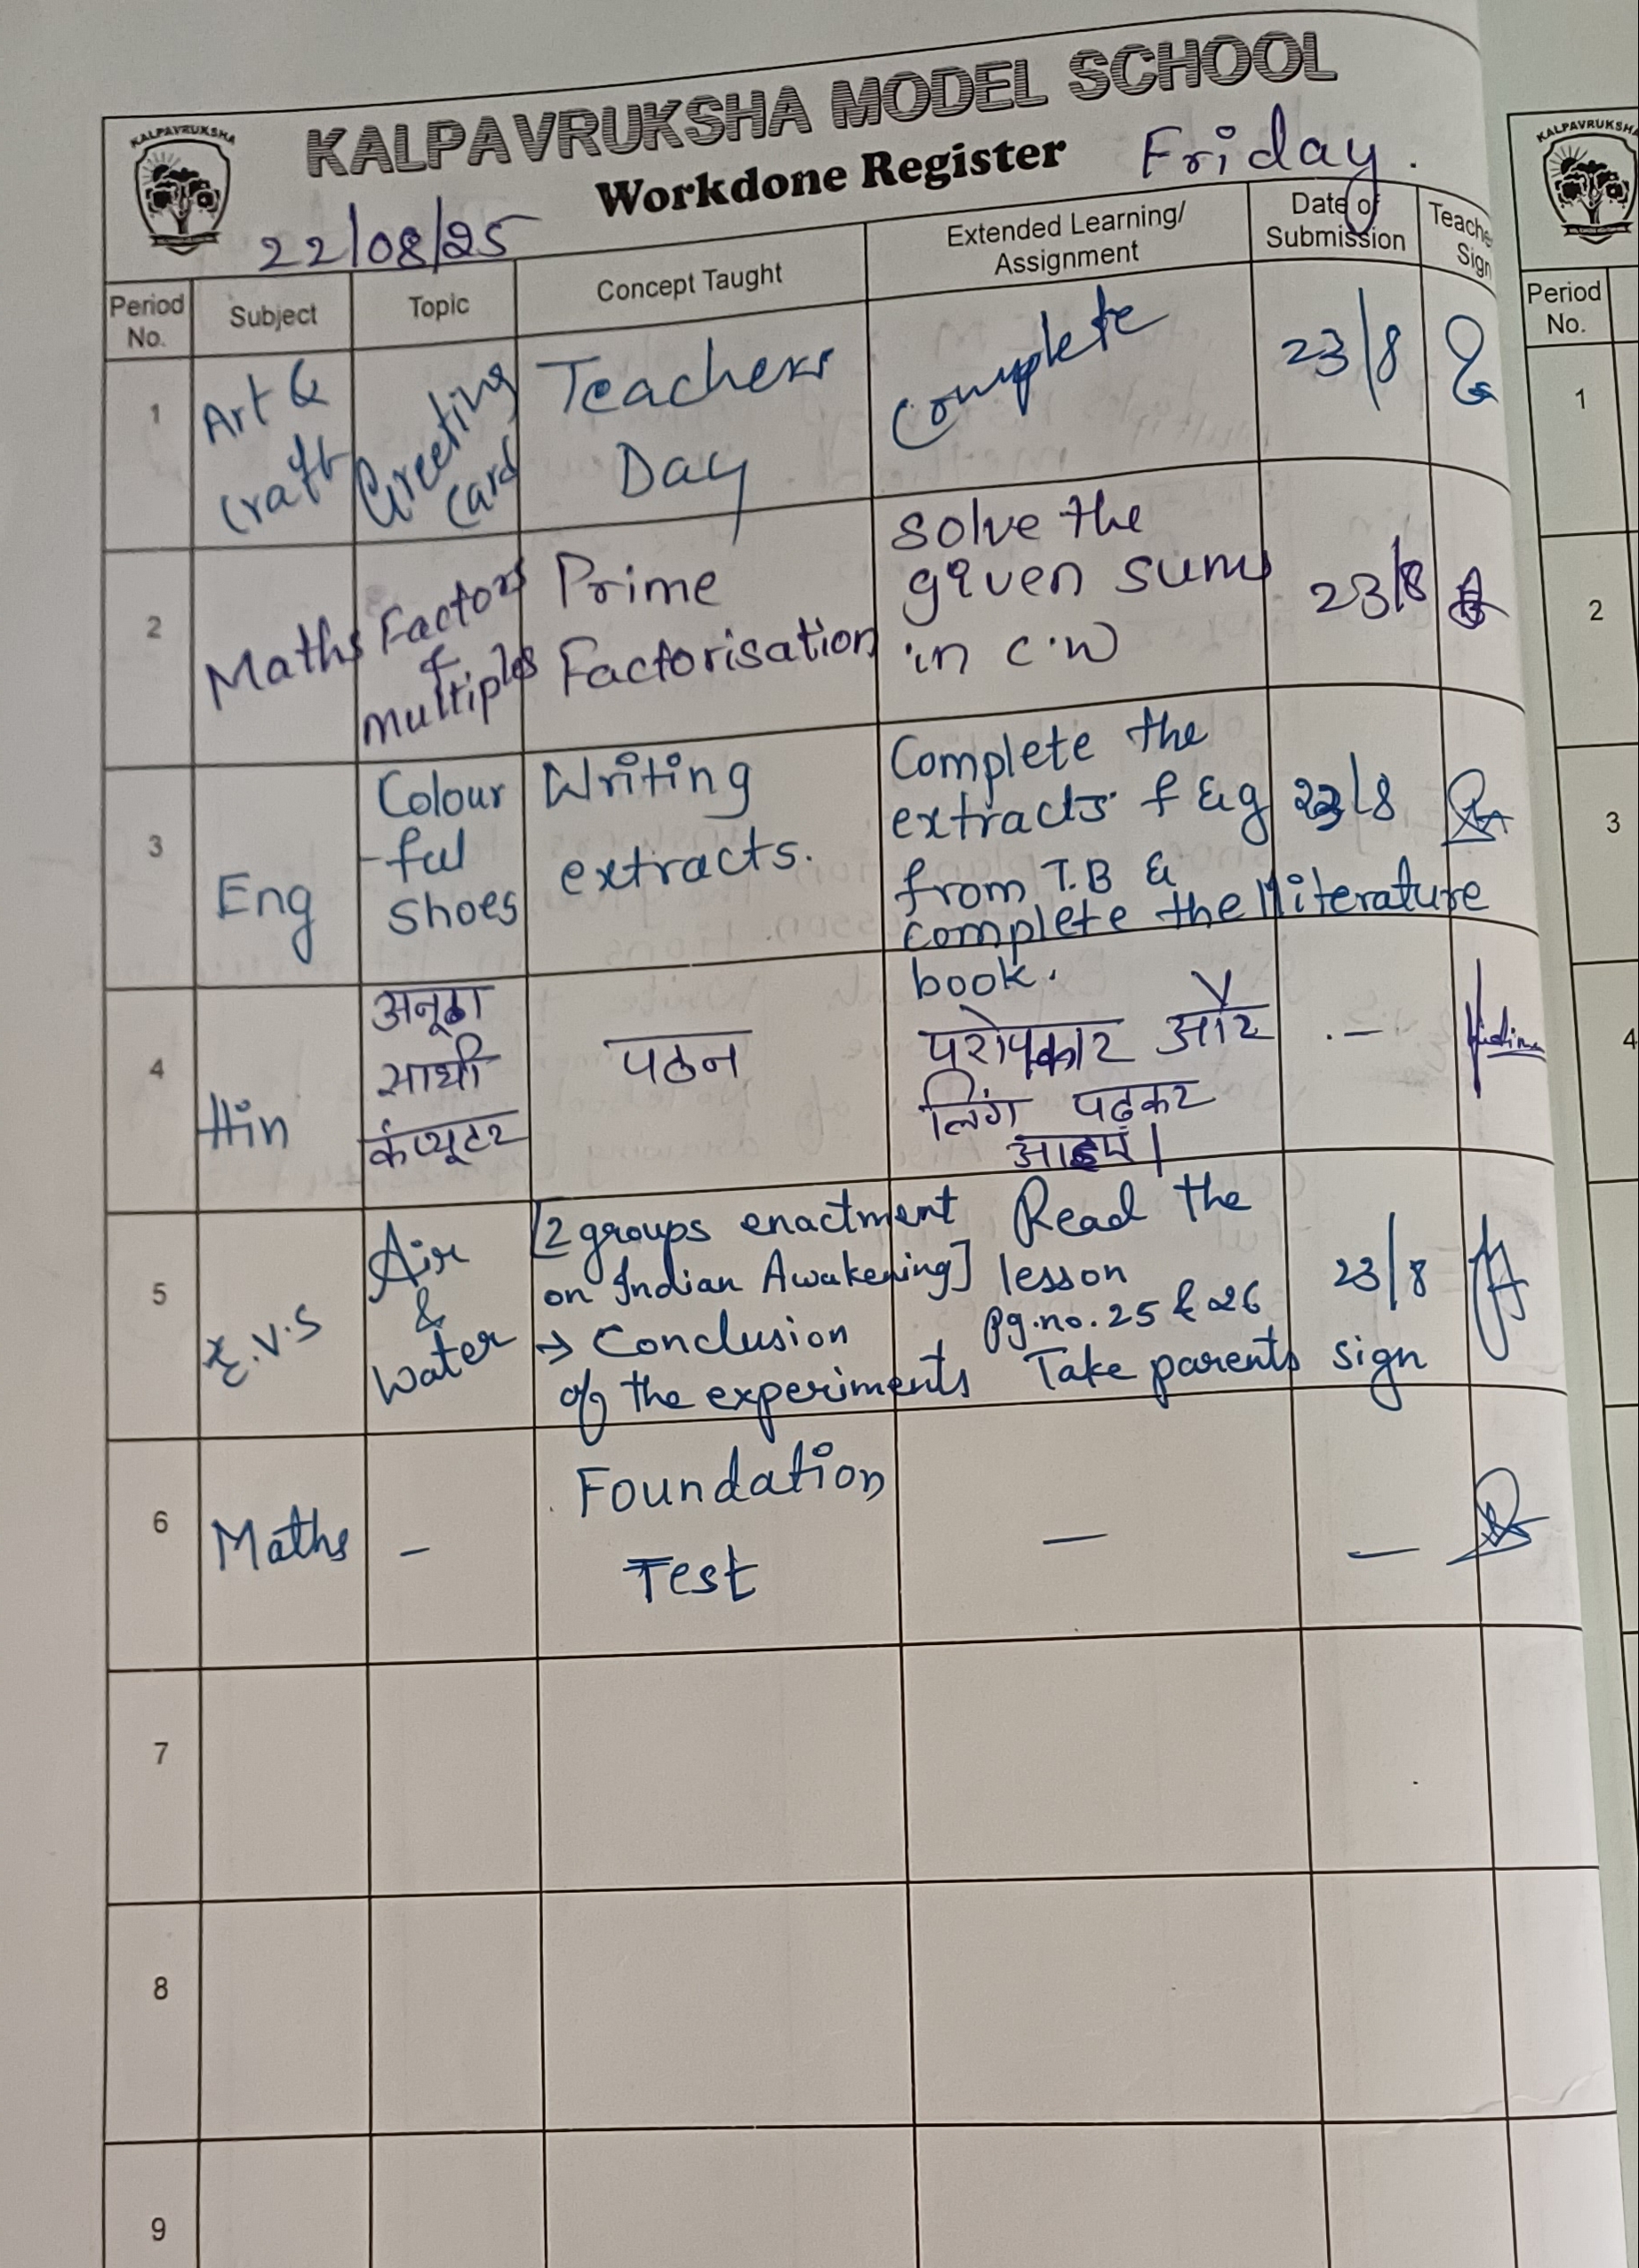 KALPAVRUKSHA
KALPAVRUKSHA MODEL SCHOOL
Workdone Register Friday.
22/08/25
Period No.
Subject
Topic
Concept Taught
Extended Learning/
Assignment
Date of
Submission
Teache
Sign
1
Art &
craft
Greeting
card
Teachers
Day
complete
23/8
2
Maths
Factors
&
multiples
Prime
Factorisation
solve the
given sums
in c.w
23/8
3
Eng
Colour
-ful
shoes
Writing
extracts.
Complete the
extracts f & g
from T.B &
complete the literature
book.
23/8
4
Hin
अनूठा
साथी
कंप्यूटर
पठन
परोपकार और
लिंग पढ़कर
आइए।
. –
5
E.V.S
Air
&
Water
[2 groups enactment
on Indian Awakening]
→ Conclusion
of the experiments
Read the
lesson
pg.no. 25 & 26
Take parents sign
23/8
6
Maths
–
Foundation
Test
—
—
7
8
9
KALPAVRUKSHA
Period
No.
1
2
3
4